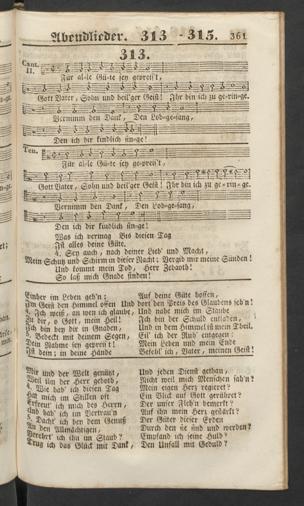 Abendlieder. 313 - 315. 361
313.
Cant. II.
Für al-le Gü-te sey gepreis't,
Gott Vater, Sohn und heil'ger Geist! Ihr bin ich zu ge-rin-ge.
Vernimm den Dank, Den Lob-ge-sang,
Den ich dir kindlich sin-ge!
Ten.
Für al-le Gü-te sey ge-preis't,
Gott Vater, Sohn und heil'ger Geist! Ihr bin ich zu ge-rin-ge.
Vernimm den Dank, Den Lob-ge-sang,
Den ich dir kindlich sin-ge!
Was ich vermag Bis diesen Tag
Ist alles deine Güte.
4. Sey auch, nach deiner Lieb' und Macht,
Mein Schutz und Schirm in dieser Nacht: Vergib mir meine Sünden!
Und kommt mein Tod, Herr Zebaoth!
So laß mich Gnade finden!
Auf deine Güte hoffen,
Und dort den Preis des Glaubens
4. Ich weiß, an wen ich glaube, Und nahe mich im Staube
Zu dir, o Gott, mein Heil! Ich bin der Schuld entladen,
Ich bin bey dir in Gnaden, Und in dem Himmel ist mein Theil.
Bedeckt mit deinem Segen, Eil' ich der Ruh' entgegen:
Dein Name sey gepreis't! Mein Leben und mein Ende
Ist dein: in deine Hände Befehl' ich, Vater, meinen Geist!
Wie und der Welt genützt, Und jeden Dienst gethan,
Weil ihn der Herr gebot, Nicht weil mich Menschen
4. Wie hab' ich diesen Tag Mein eigen Herz regieret?
Hat mich im Stillen oft Ein Blick auf Gott gerühret?
Erfreut' ich mich des Herrn, Der unser Fleh'n bemerkt?
Und hab' ich im Vertrau'n Auf ihn mein Herz gestärkt?
5. Dacht' ich bey dem Genuß Der Güter dieser Erden
An den Allmächtigen, Durch den sie sind und werden?
Verehrt' ich ihn im Staub? Empfand ich seine Huld?
Trug ich das Glück mit Dank, Den Unfall mit Geduld?